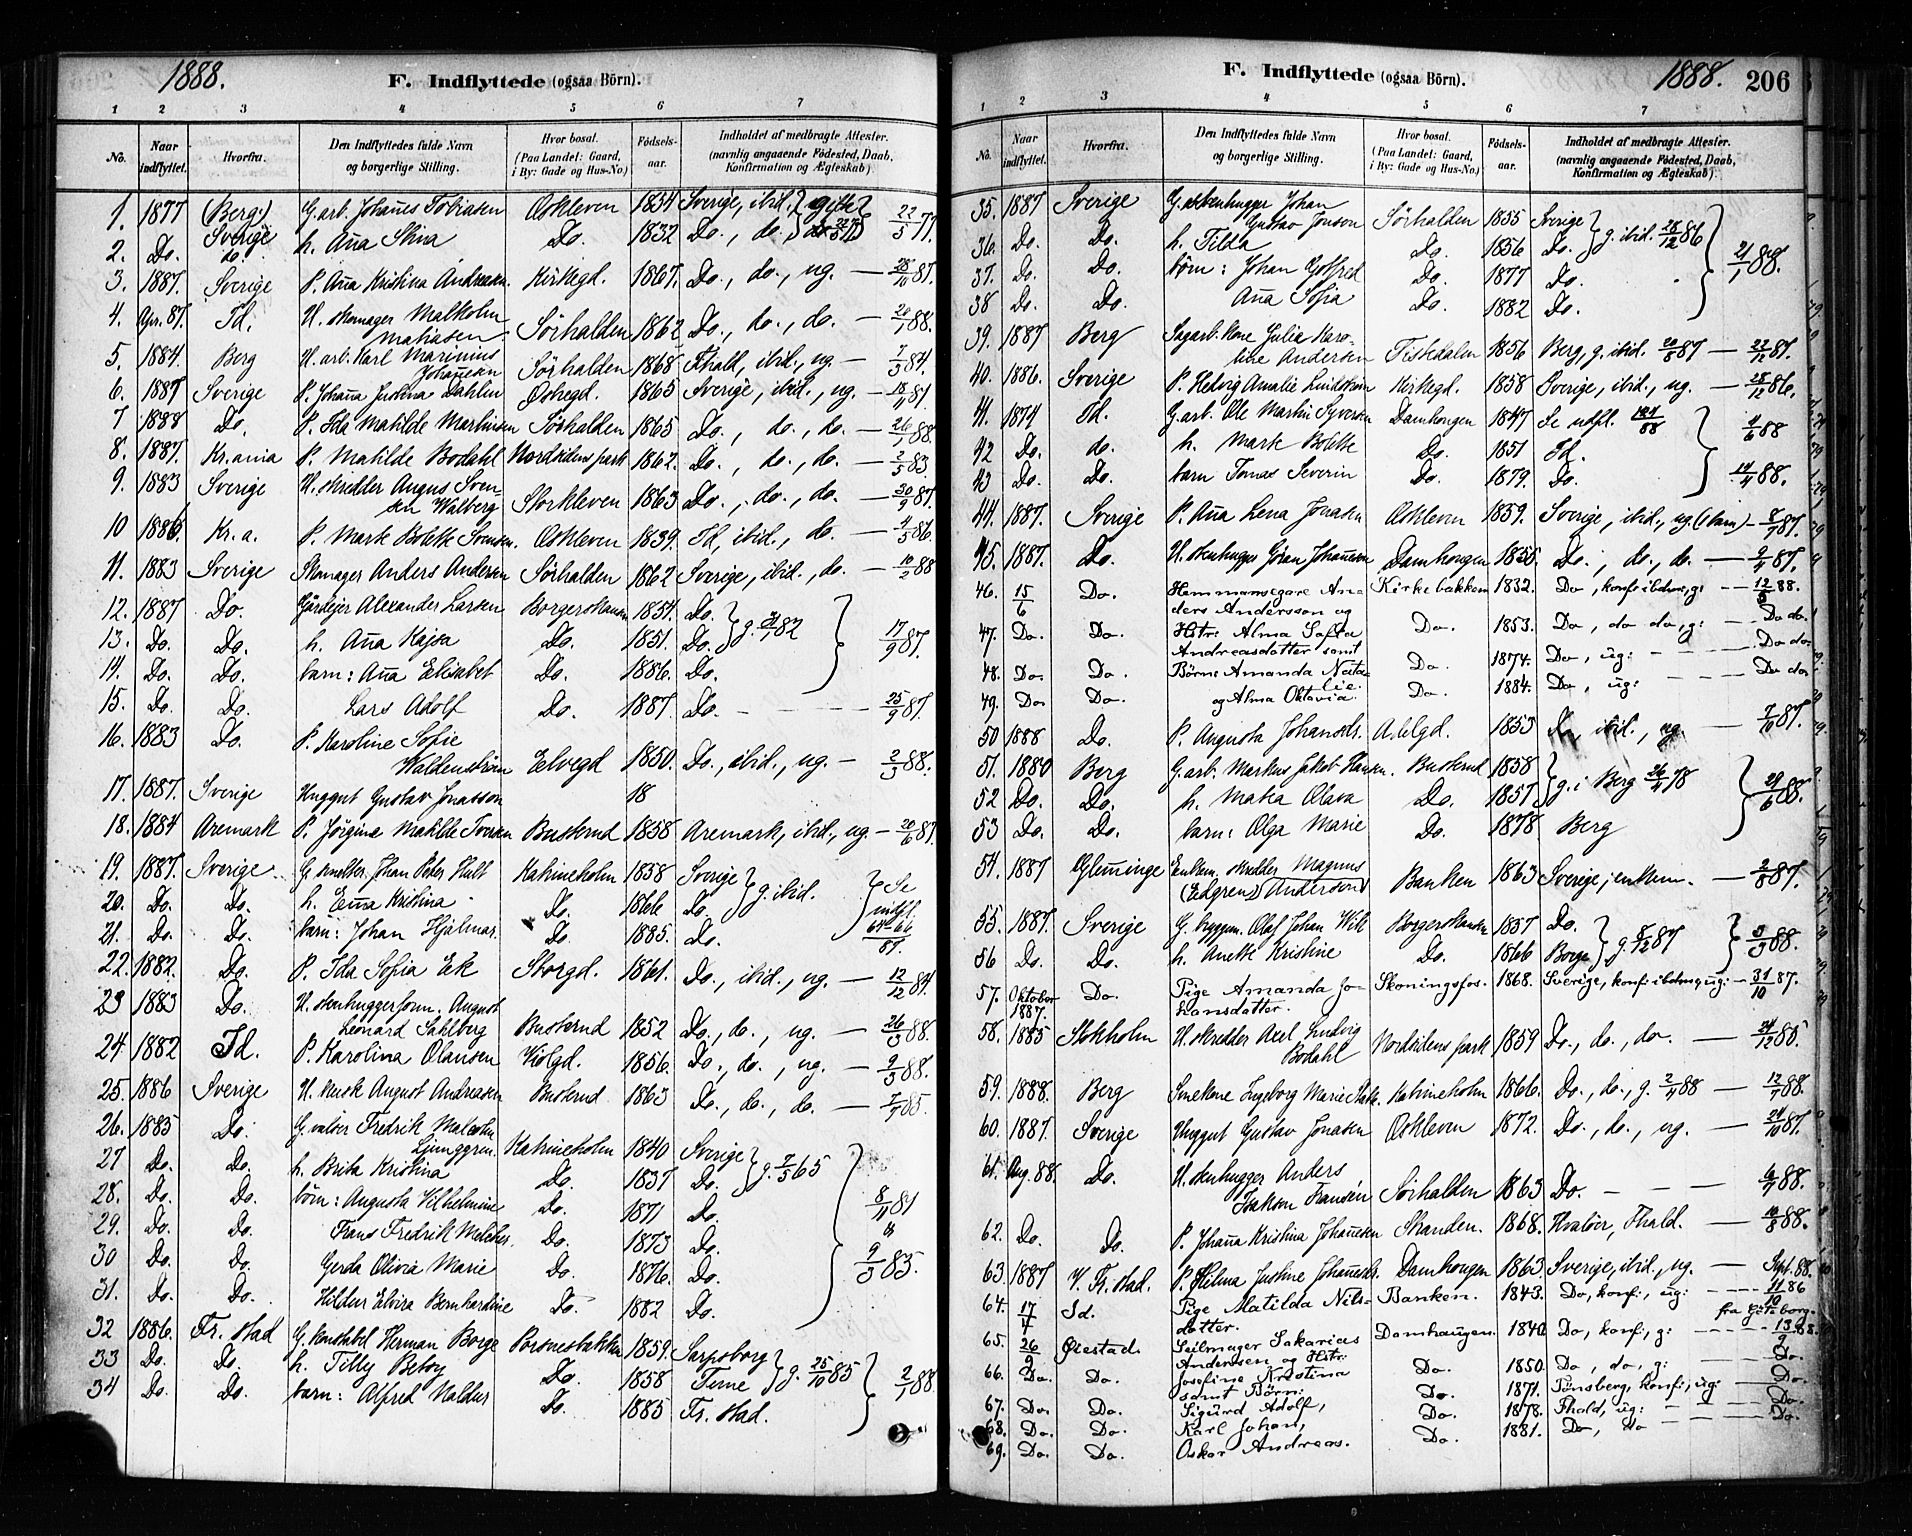 1888.
F. Indflyttede (ogsaa Börn).
1 2 3 4 5 6 7
No. Naar indflyttet. Hvorfra. Den Indflyttedes fulde Navn og borgerlige Stilling. Hvor bosat. (Paa Landet: Gaard, i By: Gade og Hus-No.) Födsels-aar. Indholdet af medbragte Attester. (navnlig angaaende Födested, Daab, Konfirmation og Ægteskab)
1. 1877 (Berg.) Sverige G. arb. Johañes Tobiasen Oskleven 1834 Sverige, ibid. gifte 22/5 77.
2. Do. do. h. Aña Stina Do. 1832 Do., do.
3. 1887. Sverige P. Aña Kristina Andreasen Kirkegd. 1867. Do., do., ug. — 28/10 87.
4. Apr. 87. Id. U. skomager Malkolm Mathisen Sörhalden 1862 Do., do., do. — 20/1 88.
5. 1884. Berg U. arb. Karl Marinius Johañesen Sörhalden 1868 Fhald, ibid., ug. — 7/3 84.
6. 1887 Sverige P. Johaña Justina Dahlin Östregd. 1865 Sverige, ibid., ug. — 18/4 87.
7 1888 Do. P. Ida Matilde Martinsen Sörhalden 1865 Do., do., do. — 26/1 88.
8. 1887. Kr.ania P. Matilde Bodahl Nordsidens park 1862. Do., do., do. — 2/5 83
9. 1883 Sverige U. skredder Angus Svensen Walberg Storkleven 1863 Do., do., do. — 30/9 87.
10 1886 Kr.a. P. Mark Bolette Svensen. Oskleven 1839. Id, ibid., do. — 4/5 86.
11. 1883 Sverige Skomager Anders Andersen Sörhalden 1862 Sverige, ibid., do. — 10/2 88
12. 1887 Do. Gårdejer Alexander Larsen Borgerskansen 1854. Do. g. 24/1 82 17/9 87.
13. Do. Do. h. Aña Kajsa Do. 1851. Do.
14. Do. Do. barn: Aña Elisabet Do. 1886. Do.
15. Do. Do. Lars Adolf Do. 1887. Do. — — — 25/9 87.
16. 1883 Do. P. Karoline Sofie Waldenström Elvegd 1850. Do., ibid., ug. — 2/3 88.
17. 1887. Sverige Unggut Gustav Jonasson 18
18. 1884 Aremark P. Jörgine Matilde Iversen Buskrud 1858 Aremark, ibid., ug. — 20/6 87.
19. 1887. Sverige G. smelter. Johan Peter Hult Katrineholm 1858 Sverige g. ibid. Se indfl. 64–66 87.
20. Do. Do. h. Emma Kristina Do. 1866 Do.
21. Do. Do. barn: Johan Hjalmar Do. 1885. Do.
22. 1882. Do. P. Ida Sofia Ek Storgd. 1861. Do., ibid., ug. — 12/12 84.
23 1883 Do. U. stenhuggerform. August Leonard Sahlberg Buskrud 1852 Do., do., ug. — 26/3 88.
24. 1882 Id. P. Karolina Olausen Violgd. 1856. Do., do., ug. — 9/3 88.
25. 1886 Sverige U. kusk August Andreasen Buskrud 1863 Do., do., do. — 7/7 85.
26. 1885 Do. G. valser Fredrik Malcolm Ljunggren Katrineholm 1840 Sverige g. 7/5 65 8/11 81 & 9/3 83.
27 Do. Do. h. Brita Kristina Do. 1837 Do.
28. Do. Do. börn: Augusta Vilhelmine Do. 1871 Do.
29. Do. Do. Frans Fredrik Melcher. Do. 1873 Do.
30 Do. Do. Gerda Olivia Marie Do. 1876. Do.
31. Do. Do. Hildur Elvira Bernhardine Do. 1882 Do.
32 1886. Fr. stad G. konstabel Herman Borge Porsnesbakken 1859. Sarpsborg g. 25/10 85 2/1 88
33 Do. Do. h. Tilly Betsy Do. 1858 Tune
34 Do. Do. barn: Alfred Haldur Do. 1885 Fr. stad.
F. Indflyttede (ogsaa Börn).
1888. 206
1 2 3 4 5 6 7
No. Naar indflyttet. Hvorfra. Den Indflyttedes fulde Navn og borgerlige Stilling. Hvor bosat. (Paa Landet: Gaard, i By: Gade og Hus-No.) Födsels-aar. Indholdet af medbragte Attester. (navnlig angaaende Födested, Daab, Konfirmation og Ægteskab)
35. 1887 Sverige G. stenhugger Johan Gustav Jonson Sörhalden 1855 Sverige g. ibid. 28/12 86 21/1 88.
36. Do. Do. h. Tilda Do. 1856 Do.
37. Do. Do. börn: Johan Gotfred Do. 1877 Do.
38 Do. Do. Aña Sofia Do. 1882 Do.
39. 1887 Berg Sagarb. kone Julia Karoline Andersen Tistedalen 1856 Berg, g. ibid. 20/8 87 — 22/12 87.
40. 1886. Sverige P. Hedvig Amalie Lindström Kirkegd. 1858 Sverige, ibid., ug. — 28/12 86.
41. 1874 Id. G. arb. Ole Martin Syversen Damhougen 1847 Se utfl. 88 4/6 88
42 Do. do. h. Mark Bolette Do. 1851 Id.
43 Do. Do. barn Tomas Severin Do. 1879. Do. 14/4 88.
44. 1887. Sverige P. Aña Lena Jonasen Oskleven 1859. Sverige, ibid., ug. (1 barn) — 8/7 87.
45. 1887. Do. U. stenhugger Göran Johañesen Damhougen 1855 Do., do., do. — 9/4 87.
46. 15/6 Do. Hemmansegare Anders Andersson og Kirkebakken 1832. Do, konf: ibdm, g: — 12/5 88.
47. Do. Do. Hstr: Alma Sofia Andreasdotter samt Do. 1853. Do, do do, g: — — Do do.
48. Do. Do. Börn: Amanda Natalie Do. 1874. Do, ug: — — — Do do.
49. Do. Do. og Alma Oktavia. Do. 1884. Do, ug: — — — Do do.
50 1888 Do. P. Augusta Johansdt. Ableg̃d. 1853 Do, ibid., ug. — 7/10 87.
51. 1880 Berg G. arb. Markus Jakob Hansen. Buskrud 1858 g. i Berg 26/4 78 29/6 88.
52 Do. Do. h. Matea Olava Do. 1857
53 Do. Do. barn: Olga Marie Do. 1878 Berg
54. 1887 Glemminge Enkem. skredder Magnus (Edgren) Anderson Banken 1863 Sverige; enkem. — 2/8 87.
55. 1887. Sverige G. bryggm. Olaf Johan Wik Borgerskansen 1857 Do. g. 8/12 87 3/3 88.
56 Do. Do. h. Anette Kristine Do. 1866 Borge
57. Oktober 1887. Do. Pige Amanda Johansdatter. Skoningsfos. 1868. Sverige, konf: ibdm, ug: — 31/10 87.
58. 1885 Stokholm U. skredder Axel Ludvig Bodahl Nordsidens park 1859 Do., do., do. — 24/12 85.
59. 1888. Berg Smekone Ingeborg Marie Katrineholm 1866. Do., do., g. 2/4 88 — 12/7 88.
60. 1887. Sverige Unggut Gustav Jonasen Oskleven 1872. Do., do., ug. — 24/10 87.
61. Aug 88. Do. U. stenhugger Anders Isakson Fransén Sörhalden 1863 Do. — — — 6/7 88.
62. Do. Do. P. Johaña Kristina Johañesen Skanden. 1868. Hvaløer, Fhald. — 10/8 88.
63. 1887 V. Fr. stad. P. Hilma Justine Johañesdt. Damhougen 1863. Sverige, ibid., ug. — Sept. 88.
64. 17/7 Id. Pige Matilda Nilsdotter. Banken. 1843. Do, konf:, ug: — — — 11/10 86 fra Göteborg.
65. 26/9 Öiestad. Seilmager Sakarias Andersen og Hstr: Damhaugen. 1840 Do, konf:, g: — — — 13/9 88.
66. Do. Do. Josefine Kristina samt Börn: Do. 1850. Do, do, g: — — Do.
67. Do. Do. Sigurd Adolf, Do. 1871. Tönsberg, konf:, ug: — Do.
68. Do. Do. Karl Johan, Do. 1878. Fhald, ug: — — — Do.
69. Do. Do. Oskar Andreas. Do. 1881. Do, do — — — Do.